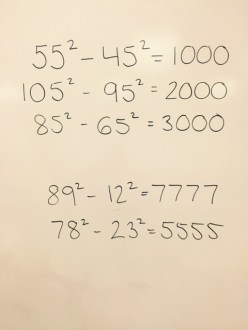 55² - 45² = 1000
105² - 95² = 2000
85² - 65² = 3000
89² - 12² = 7777
78² - 23² = 5555